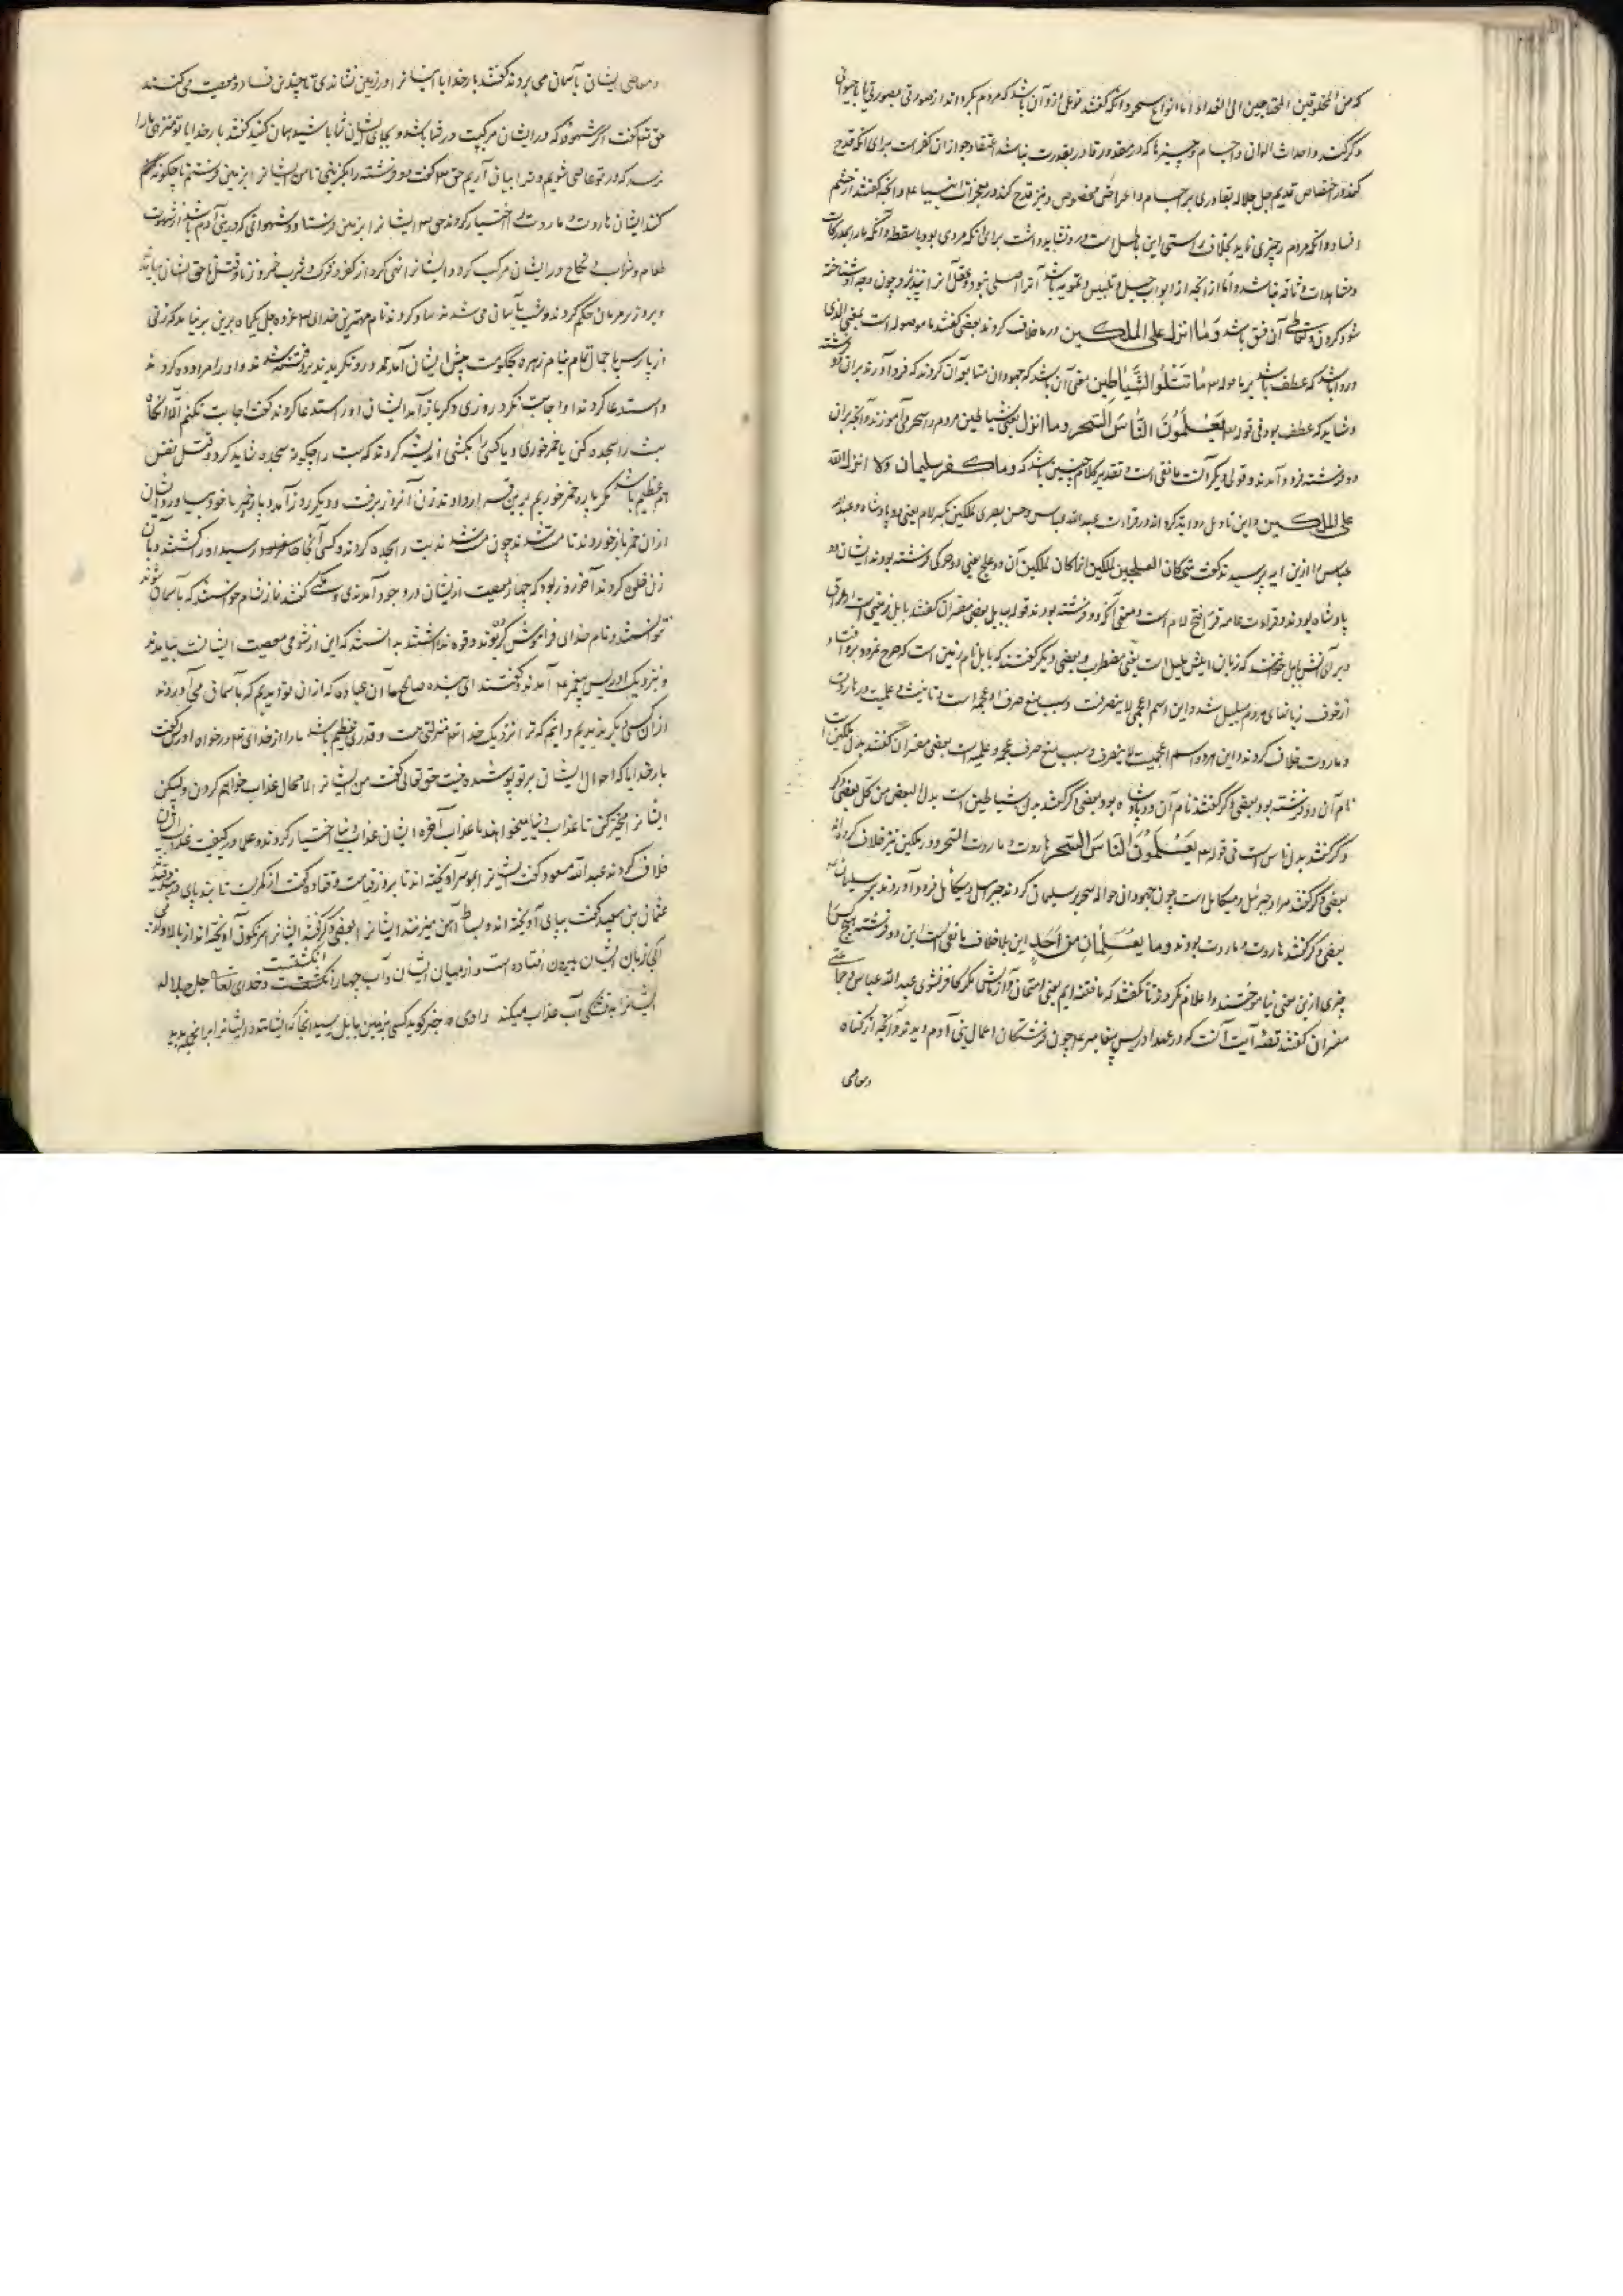 که من المخلوقین المحتاجین الی الغذاء اما انواع سحر و آنکه گفتند نوعی ازو آن باشد که مردم بگرداند از صورتی بصورتی یا با حیوانی
دگر کنند و احداث الوان و اجسام و چیزها که در مقدور قادر بقدرت نباشد اعتقاد جواز این کفر است برای آنکه قدح
کند در اختصاص قدیم جل جلاله بقادری بر اجسام و اعراض مخصوص و نیز قدح کند در معجزات انبیا ع م و آنچه گفتند از چشم
افساد و آنکه مردم را چیزی نماید بخلاف راستی این باطل است و روا نشاید داشت برای آنکه مودی بود با سقطه و آنکه ما را بمدرکات
و مشاهدات وثاقه نباشد و اما آنچه از ابواب حیل و تلبیس و تمویه باشد آنرا اصلی نبود و عقل آنرا نپذیرد و چون وجه او شناخته
شود کردن و تعاطی آن فسق باشد وَمَا انزل علی الملکین در ما خلاف کردند بعضی گفتند ما موصوله است بمعنی الذی
و روا باشد که عطف باشد بر ما قوله مَا تَتْلُوا الشَّیَاطِین معنی آن باشد که جهودان متابعه آن کردند که فرود آوردند بر آن دو فرشته
و شاید که عطف بود فی قوله یُعَلِّمُونَ النَّاسَ السِّحرَ وما انزل یعنی شیاطین مردم را سحر می آموزند و آنچه بر آن
دو فرشته فرود آمد و قولی دیگر آنست ما نفی است و تقدیر کلام چنین باشد که وما کفر سلیمان ولا انزل الله
علی الملکین و این تاویل روایت کرده اند در قراءت عبدالله عباس و حسن بصری ملکین بکسر لام یعنی دو پادشاه و عبدالله
عباس را ازین آیه پرسیدند گفت متی کان العلجین ملکین انما کان ملکین آن دو علج یعنی دو مرد کی فرشته بودند ایشان دو
پادشاه بودند و قراءت عامه قرا فتح لام است و معنی آنکه دو فرشته بودند قوله ببابل بعضی مفسران گفتند بابل زمینی است از عراق
و برای آنش بابل خوانند که زبان اهلش بلبل است یعنی مضطرب و بعضی دیگر گفتند که بابل نام زمین است که صرح نمرود بیوفتاد
از خوف زبانهای مردم تبلبل شد و این اسم اعجمی لا ینصرفست و سبب منع صرف او عجمه است و تانیث و علمیت در هاروت
و ماروت خلاف کردند و این هر دو اسم اعجمیست لا ینصرف و سبب منع صرف عجمه و علمیه است بعضی مفسران گفتند بدل ملکین است
نام آن دو فرشته بود و بعضی دگر گفتند نام آن دو پادشاه بود و بعضی دگر گفتند بدل شیاطین است بدل البعض من کل بعضی دگر
دگر گفتند بدل ناس است فی قوله یُعَلِّمُونَ النَّاسَ السِّحرَ هاروت و ماروت السحر و در ملکین نیز خلاف کرده اند
بعضی دگر گفتند مراد جبرئیل و میکائیل است چون جهودان حواله سحر بر سلیمان کردند جبرئیل و میکائیل فرود آوردند بر سلیمان
بعضی دگر گفتند هاروت و ماروت بودند وما یُعَلِّمَانِ مِن اَحَدٍ این بلا خلاف ما نفی است این دو فرشته هیچ کس را
چیزی ازین معنی نیاموختند و اعلام نکردند تا نگفتند که ما فتنه ایم یعنی امتحان و آزمایش نگر کافر نشوی عبدالله عباس و جماعتی
مفسران گفتند قصه آیت آنست که در عهد ادریس پیغامبر ع م چون فرشتگان اعمال بنی آدم دیدند و آنچه از گناه
و معاصی
و معاصی ایشان بآسمان می بردند گفتند بار خدایا ایشانرا در زمین نشاندی تا چندین فساد و معصیت می کنند
حق تع گفت اگر شهوة که در ایشان مرکبست در شما باشد و بجای ایشان شما باشید همان کنید گفتند بار خدایا تو منزهی ما را
نرسد که در تو عاصی شویم و ترا بیان آریم حق تع گفت دو فرشته را بگزینی تا من ایشانرا بزمین فرستم تا چگونه حکم
کنند ایشان هاروت و ماروت را اختیار کردند حق تع ایشانرا بزمین فرستاد و شهواتی که در بنی آدم باشد از شهوت
طعام و شراب و نکاح در ایشان مرکب کرد و ایشانرا نهی کرد از کفر و شرک و شرب خمر و زنا و قتل ناحق ایشان بیامدند
و بروز بر مردمان حکم کردند و شب بآسمان می شدند بنام مهترین خدای عز و جل یکماه برین بر نیامد که زنی
از پارس با جمال تمام بنام زهره بحکومت پیش ایشان آمد چون درو نگریدند برو فتنه شدند و او را مراوده کردند
و استدعا کردند او اجابت نکرد روزی دگر باز آمد ایشان او را استدعا کردند گفت اجابت نکنم الا آنگاه
بت را سجده کنی یا خمر خوری و یا کسی را بکشی اندیشه کردند که بت را چگونه سجده شاید کرد و قتل نفس
هم عظیم باشد مگر پاره خمر خوریم برین قرار دادند زن آنروز برفت و دیگر روز آمد و پاره خمر با خود بیاورد ایشان
ازان خمر باز خوردند تا مست شدند چون مست شدند بت را سجده کردند و کسی آنجا حاضر بود رسید او را کشتند و با آن
زن خلوه کردند آخر روز بود که چهار معصیت از ایشان در وجود آمد گفتند نماز شام خواستند که بآسمان شوند
نتوانستند و نام خدای فراموش کرده بودند و قوه نداشتند بدانستند که این از شومی معصیت ایشانست بیامدند
و نزدیک ادریس پیغمبر ع آمدند و گفتند ای بنده صالح ما آن عباده که ازان تو آمدیم که بآسمان می آوردند
ازان کسی دیگر ندیدیم و دانیم که ترا نزدیک خدا تع منزلتی هست و قدری عظیم باشد ما را از خدای تع در خواه او گفت
بار خدایا که احوال ایشان بر تو پوشیده نیست حق تعالی گفت من ایشانرا لا محال عذاب خواهم کردن ولیکن
ایشانرا مخیر کن تا عذاب دنیا میخواهند یا عذاب آخره ایشان عذاب دنیا اختیار کردند و علما در کیفیت عذاب ایشان
خلاف کردند عبدالله مسعود گفت ایشانرا بموی سر آویخته اند تا بروز قیامت و قتاده گفت از کمر ایشان تا بند پای در قید
عثمان بن سعید گفت بپای آویخته اند و بسیاط آهن میزنند ایشانرا و بعضی دگر گفتند ایشانرا سرنگون آویخته اند از بالا
آبی زبان ایشان بیرون افتاده است و از میان ایشان و آب چهار انگشتست و خدای تعالی جل جلاله
ایشانرا به تشنگی آب عذاب میکند راوی خبر گوید کسی بزمین بابل رسید آنجا که ایشانند و ایشانرا بر آنجمله بدید